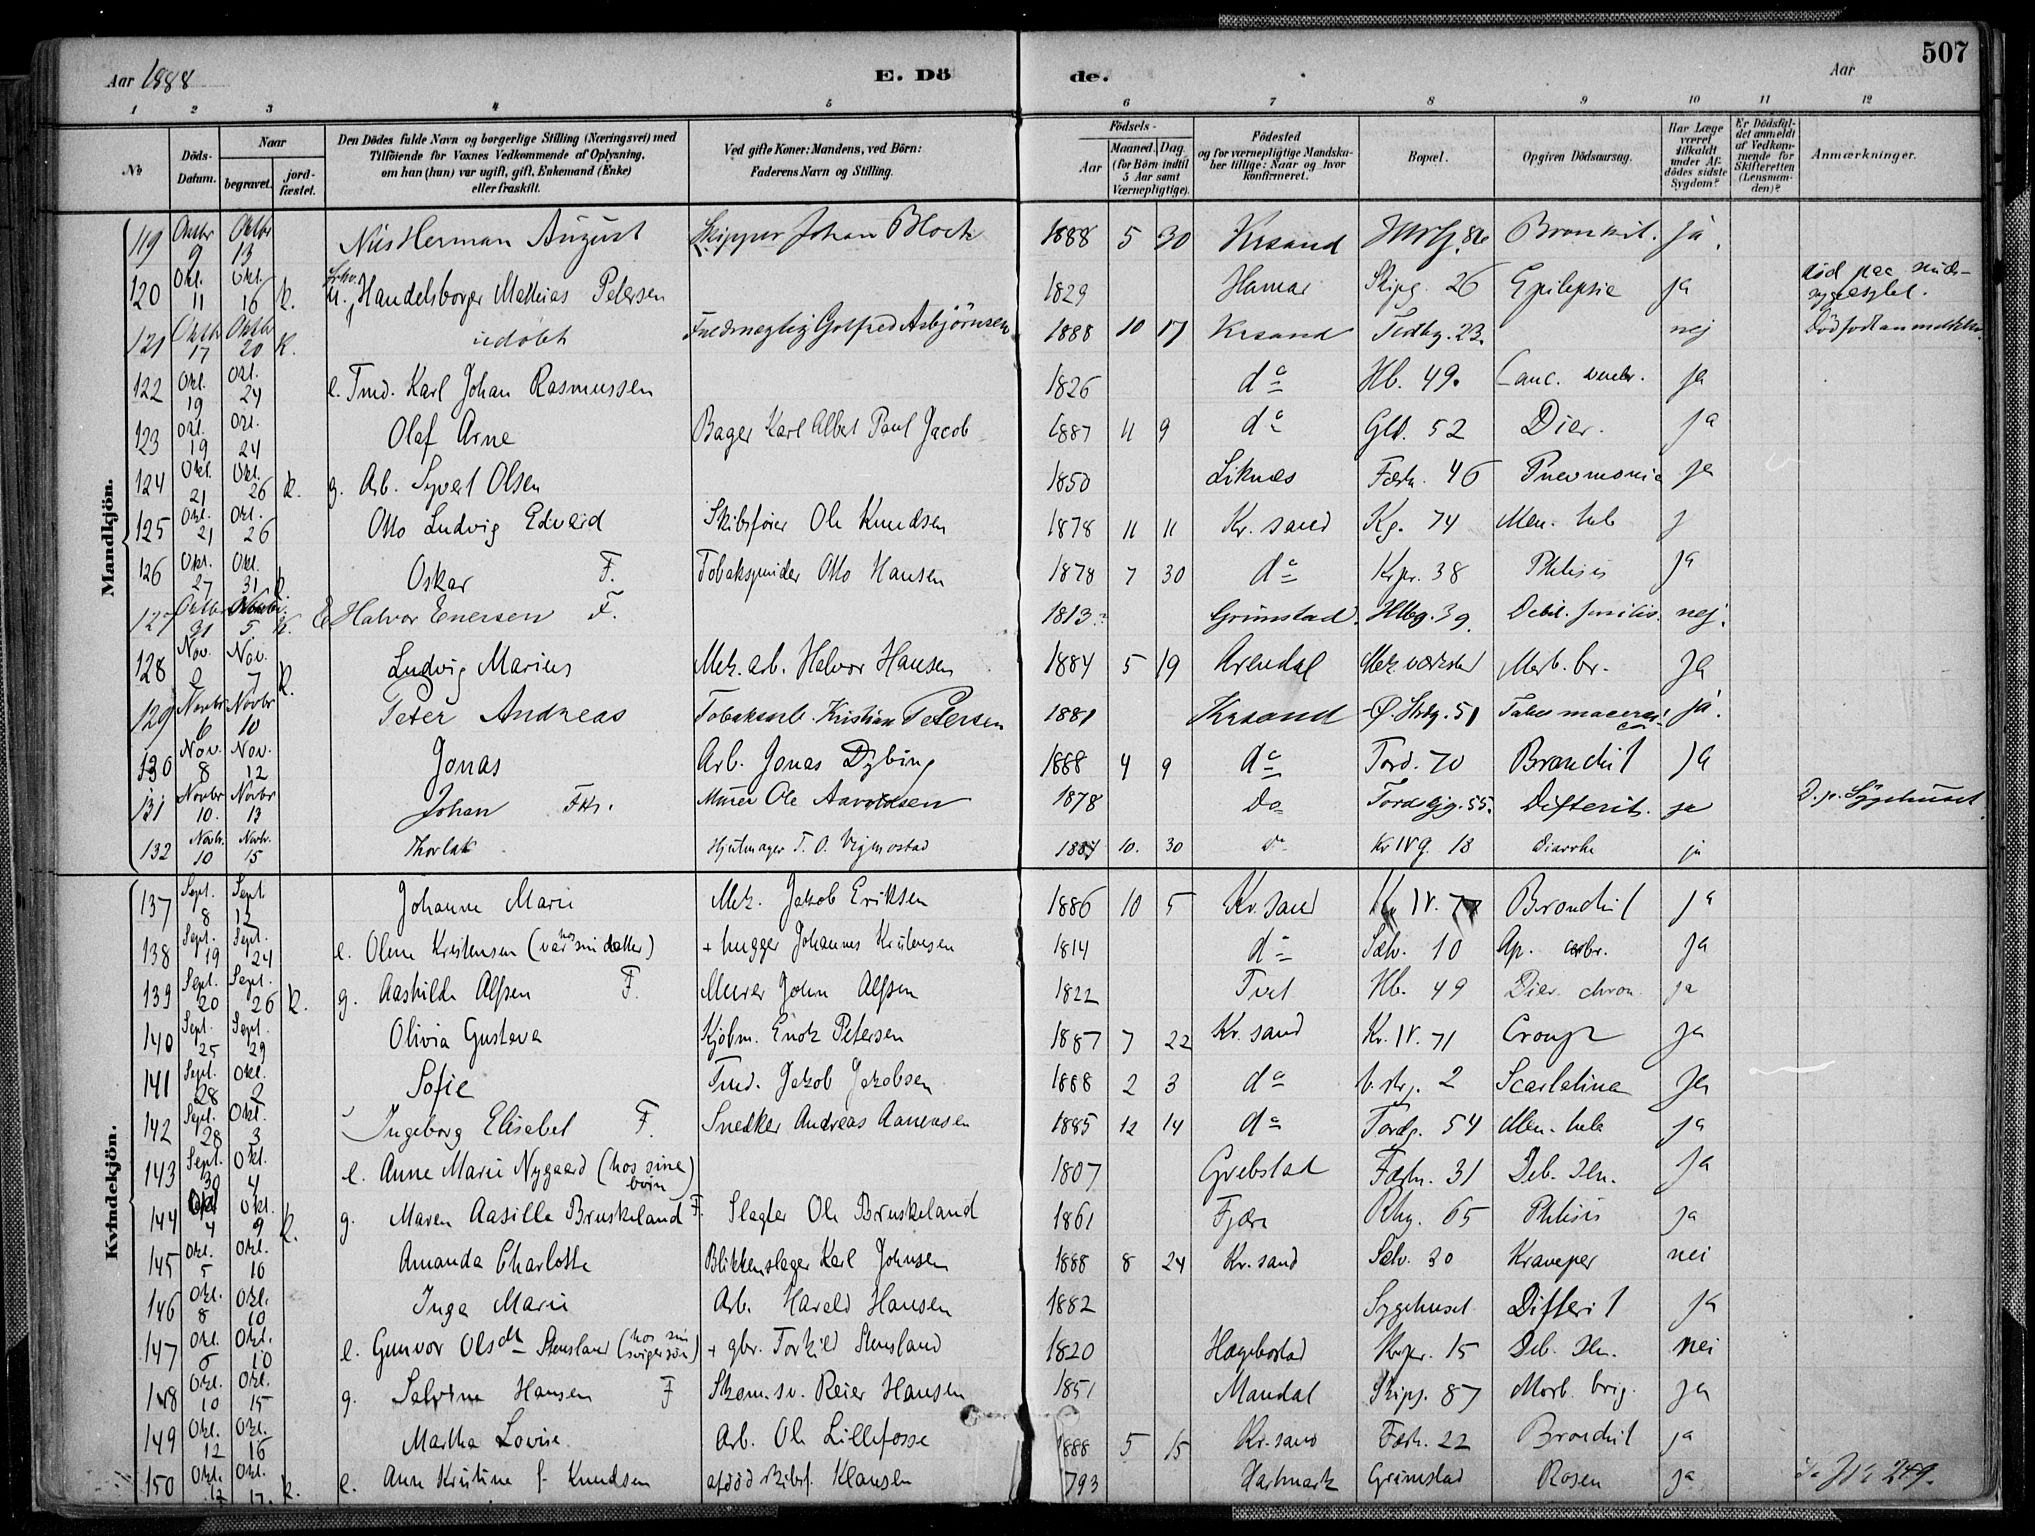 507
Aar 1888 E. Dö de. Aar
1 2 3 4 5 6 7 8 9 10 11 12
No
Döds-Datum.
Naar
begravet.
jord-fæstet.
Den Dödes fulde Navn og borgerlige Stilling (Næringsvei) med
Tilföiende for Voxnes Vedkommende af Oplysning,
om han (hun) var ugift, gift, Enkemand (Enke)
eller fraskilt.
Ved gifte Koner: Mandens, ved Börn:
Faderens Navn og Stilling.
Födsels-
Aar
Maaned. Dag.
(for Börn indtil
5 Aar samt
Værnepligtige).
Födested
og for værnepligtige Mandska-
ber tillige: Naar og hvor
konfirmeret.
Bopæl.
Opgiven Dödsaarsag.
Har Læge
været
tilkaldt
under Af-
dödes sidste
Sygdom?
Er Dödsfal-
det anmeldt
af Vedkom-
mende for
Skifteretten
(Lensman-
den)?
Anmærkninger.
Mandkjön.
119 Oktbr 9 Oktbr 13 Nils Herman August Skipper Johan Bloch 1888 5 30 Krsand Bronkit. ja.
120 Okt. 11 Okt. 16 K. Handelsborger Mathias Petersen 1829 Hamar Skipg. 26 Epilepsie ja död paa sinds-
sygeasylet.
121 Oktbr 17 Oktbr 20 K. udöbt Gotfred Asbjörnsen 1888 10 17 Krsand 23. nej
122 Okt. 19 Okt. 24 e. Tmd. Karl Johan Rasmussen 1826 do Hb. 49. Canc. ja
123 Okt. 19 Okt. 24 Olaf Arne Bager Karl Albet Paul Jacob 1887 11 9 do Gld. 52 Diar. ja
124 Okt. 21 Okt. 26 K. g. Arb. Syvert Olsen 1850 Liknes Fæstn. 46 Pneumonia ja
125 Okt. 21 Okt. 26 Otto Ludvig Edvard Skibsförer Ole Knudsen 1878 11 11 Kr.sand Kg. 74 Men. tub j
126 Okt. 27 Okt. 31 Oskar F. Tobakspinder Otto Hansen 1878 7 30 do Krpr. 38 Phtisis ja
127 Oktbr 31 Novbr. 5 K. E Halvor Enersen F. 1813 Grimstad. Hlbg. 39. Debil. senilis. nej.
128 Nov. 2 Nov. 7 K. Ludvig Marius Mek. arb. Halvor Hansen 1884 5 19 Arendal Mek værksted Morb. br. Ja
129 Novbr 6 Novbr 10 Peter Andreas Tobaksarb. Kristian Petersen 1881 Krsand Ø. Strdg. 51 ja.
130 Nov. 8 Nov. 12 Jonas Arb. Jonas Dybing 1888 4 9 do Tord. 70 Bronchit ja
131 Novbr 10. Novbr 13 Johan Fkr. Murer Ole Aanonsen 1878 Do 55. Difterit. ja D. p. Sygehuset.
132 Novbr. 10 Novbr. 15 Thorlak Hjulmager T. O. Vigmostad 1887 10. 30 do Kr IV g. 18 Diarrhe ja
Kvindekjön.
137 Sept. 8 Sept 12 Johanne Marie Mek. Jakob Eriksen 1886 10 5 Kr.sand Kr. IV. 77 Bronchit ja
138 Sept. 19 Sept. 24 e. Olene Kristensen (var hos sin datter) + hugger Johannes Kristensen 1814 do Sælv. 10 Ap. cerbr. ja
139 Sept. 20 Sept. 26 K. g. Aashilde Alfsen F. Murer John Alfsen 1822 Tvet Hb. 49 Diar. chron. ja
140 Sept. 25 Sept. 29 Olivia Gustava Kjöbm. Enok Petersen 1887 7 22 Kr. sand Kr. IV. 71 Croup ja
141 Sept. 28 Okt. 2 Sofie Tmd. Jakob Jakobsen 1888 2 3 do 2 Scarlatina ja
142 Sept. 28 Okt. 3 Ingeborg Elisabet F. Snedker Andreas Aanensen 1885 12 14 do Tordg. 54 Men. tub ja
143 Sept. 30 Okt. 4 e. Anne Marie Nygaard (hos sine börn) 1807 Grebstad Fæstn. 31 Deb. sen. ja
144 Okt 4 Okt. 9 K. g. Maren Aasille Bruskeland F. Slagter Ole Bruskeland 1861 Fjære Rhg. 65 Phtisis ja
145 Okt. 5 Okt. 10 Amanda Charlotte Blikkenslager Karl Johnsen 1888 8 24 Kr.sand Sælv. 30 Kramper nei
146 Okt. 8 Okt. 10 Inga Marie Arb. Harald Hansen 1882 Sygehuset Difterit ja
147 Okt. 6 Okt. 10 e. Gunvor Olsdtr Stensland (hos sin svigersön) + gbr. Torkild Stensland 1820 Hægebostad Krpr. 15 Deb. sen. nei
148 Okt. 10 Okt. 15 g. Salvine Hansen F Skom.sv. Reier Hansen 1851 Mandal Skips. 87 Morb. brig. ja
149 Okt. 12 Okt. 16 Martha Lovise Arb. Ole Lillefosse 1888 5 15 Kr.sand Fæst. 22 Bronchit ja
150 Okt. 12 Okt. 17. K. e. Ane Kristine f. Knudsen afdöd Skibsf. Klausen 793 Hartmark Grimstad Rosen ja 249.